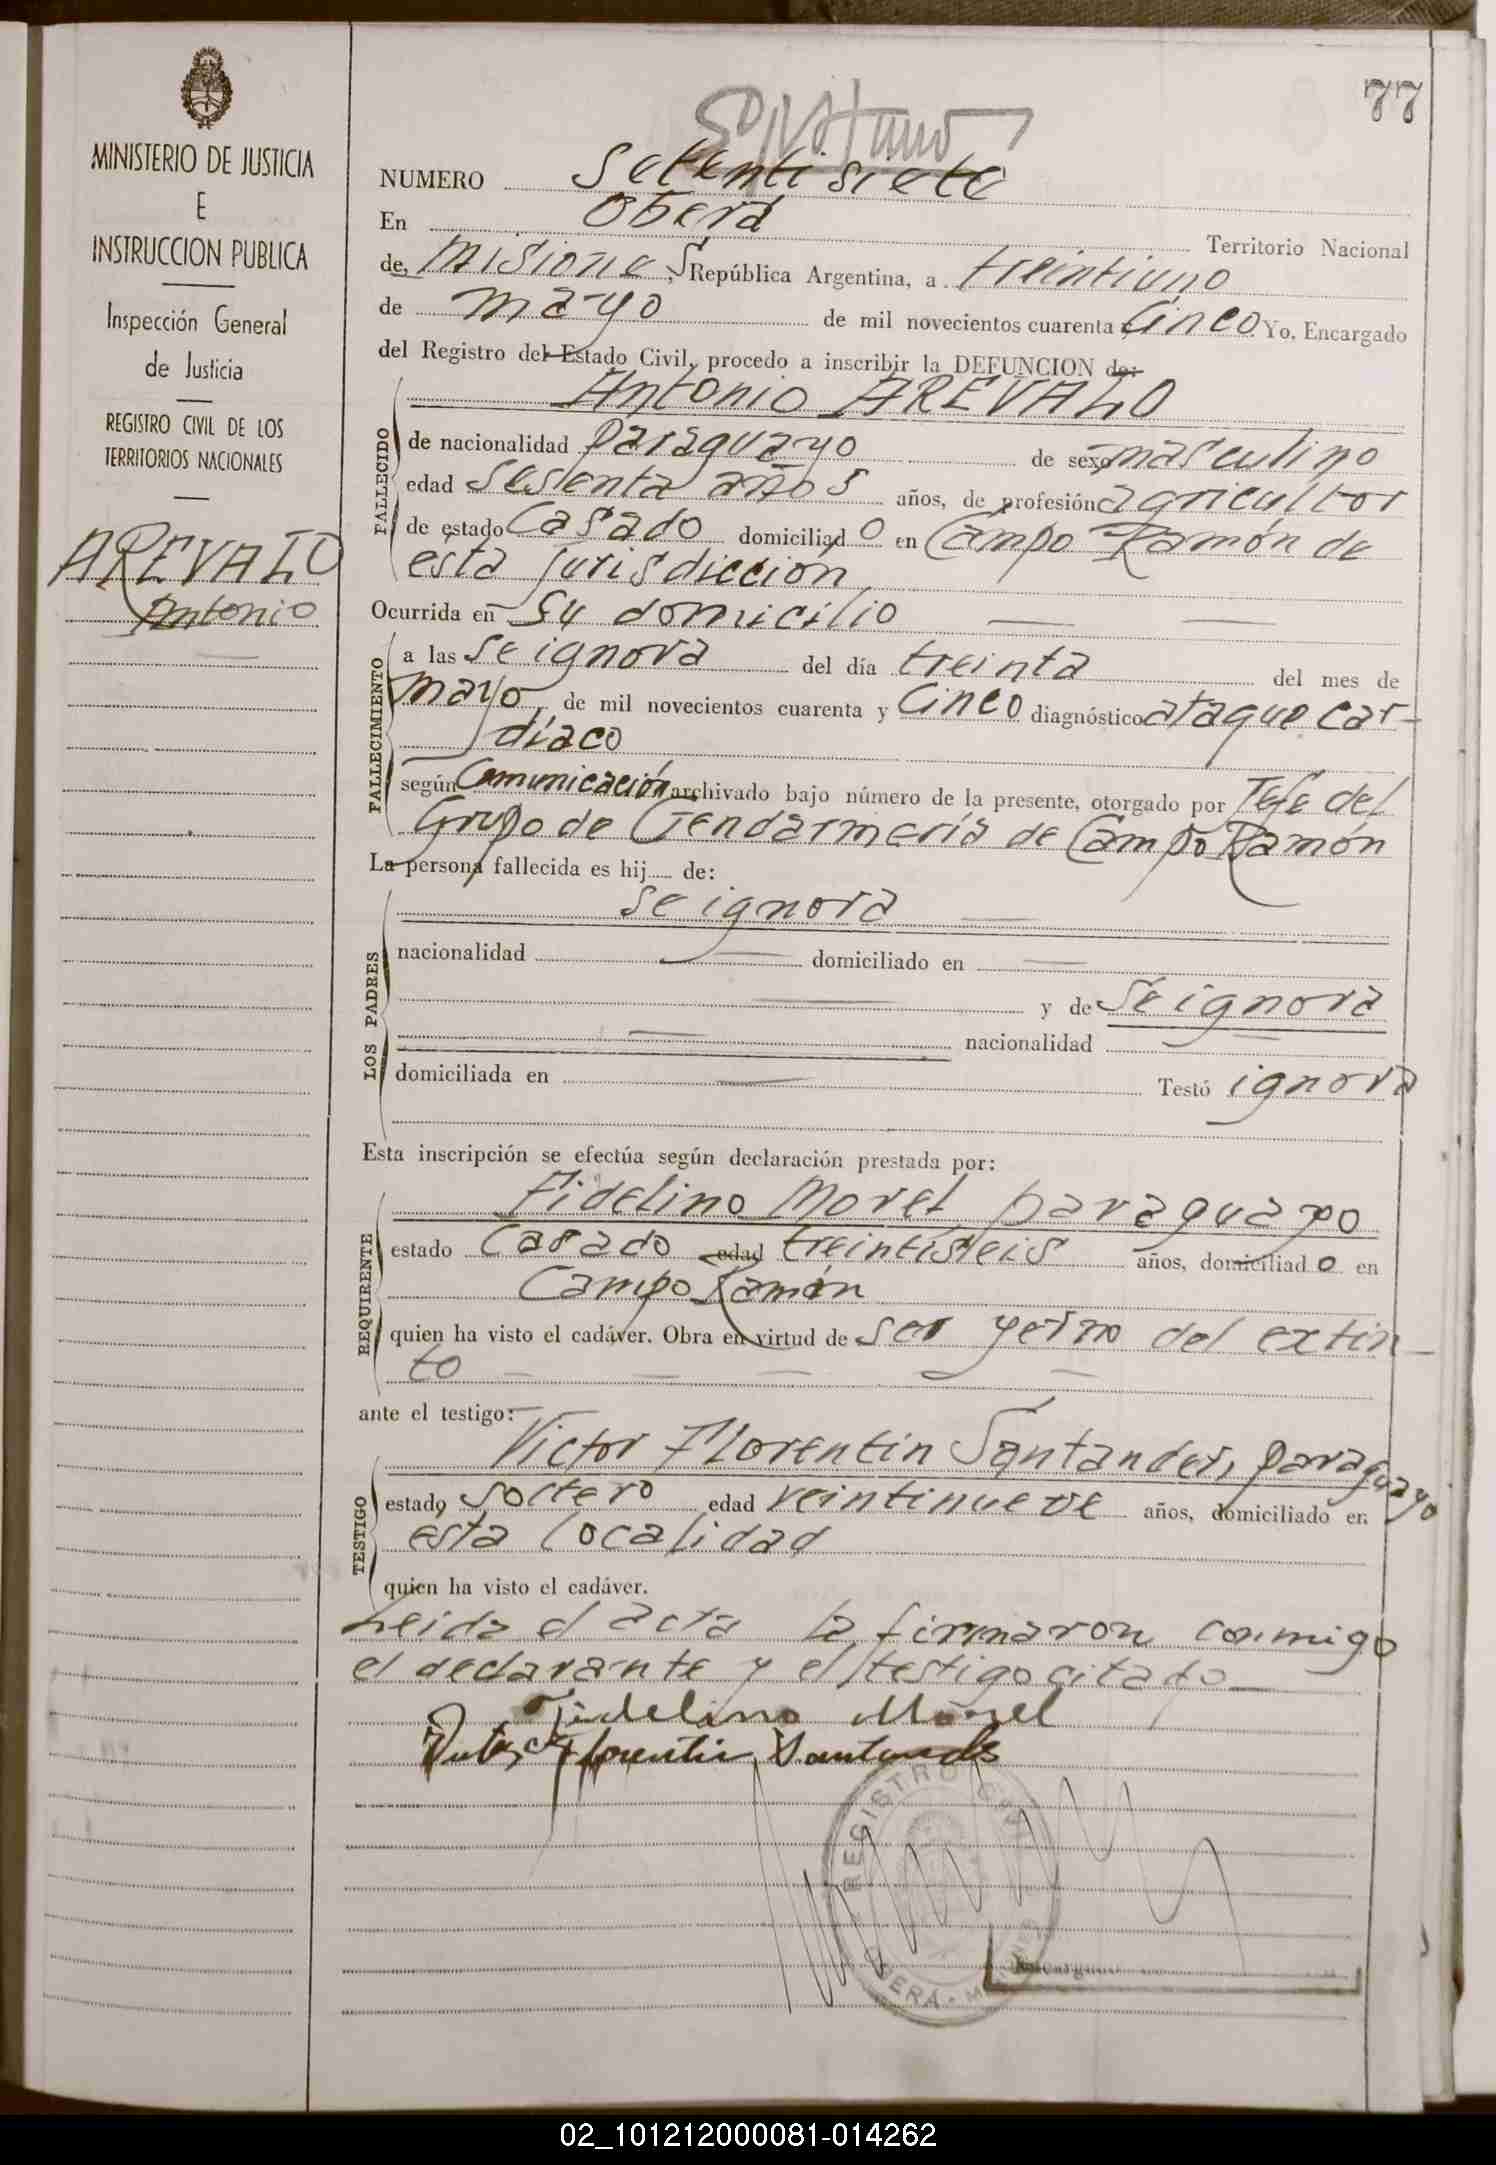 77
MINISTERIO DE JUSTICIA
E
INSTRUCCION PUBLICA
Inspección General
de Justicia
REGISTRO CIVIL DE LOS
TERRITORIOS NACIONALES
AREVALO
Antonio
NUMERO Setentisiete
En Oberá Territorio Nacional
de, Misiones, República Argentina, a treintiuno
de mayo de mil novecientos cuarenta y Cinco Yo, Encargado
del Registro del Estado Civil, procedo a inscribir la DEFUNCION de:
Antonio AREVALO
FALLECIDO
de nacionalidad paraguayo de sexo masculino
edad sesenta años años, de profesión agricultor
de estado Casado domiciliado en Campo Ramón de
esta jurisdicción
Ocurrida en su domicilio
FALLECIMIENTO
a las se ignora del día treinta del mes de
mayo de mil novecientos cuarenta y Cinco diagnóstico ataque car-
díaco
según Comunicación archivado bajo número de la presente, otorgado por Jefe del
Grupo de Gendarmería de Campo Ramón
La persona fallecida es hij de:
LOS PADRES
se ignora
nacionalidad domiciliado en
y de se ignora
nacionalidad
domiciliada en Testó ignora
Esta inscripción se efectúa según declaración prestada por:
REQUIRENTE
Fidelino Morel paraguayo
estado Casado edad treintiseis años, domiciliado en
Campo Ramón
quien ha visto el cadáver. Obra en virtud de ser yerno del extin-
to
ante el testigo:
TESTIGO
Victor Florentín Santander, paraguayo
estado soltero edad veintinueve años, domiciliado en
esta localidad
quien ha visto el cadáver.
Leida el acta la firmaron conmigo
el declarante y el testigo citado
Fidelino Morel
Florentin Santander
REGISTRO CIVIL
OBERA - MISIONES
02_101212000081-014262